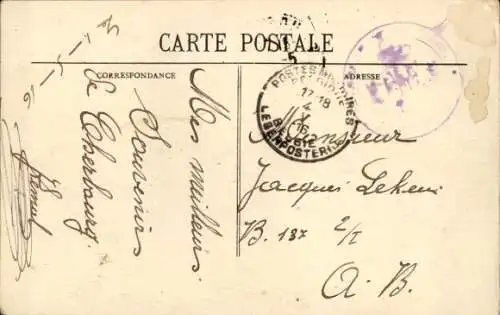 CARTE POSTALE
CORRESPONDANCE
ADRESSE
4-5-16
Mes meilleurs
Souvenirs
de Cherbourg.
POSTES MILITAIRES
BELGIQUE
17-18
4
V
16
BELGIE
LEGERPOSTERIJ
Monsieur
Jacques
B. 137 2/I
A. B.